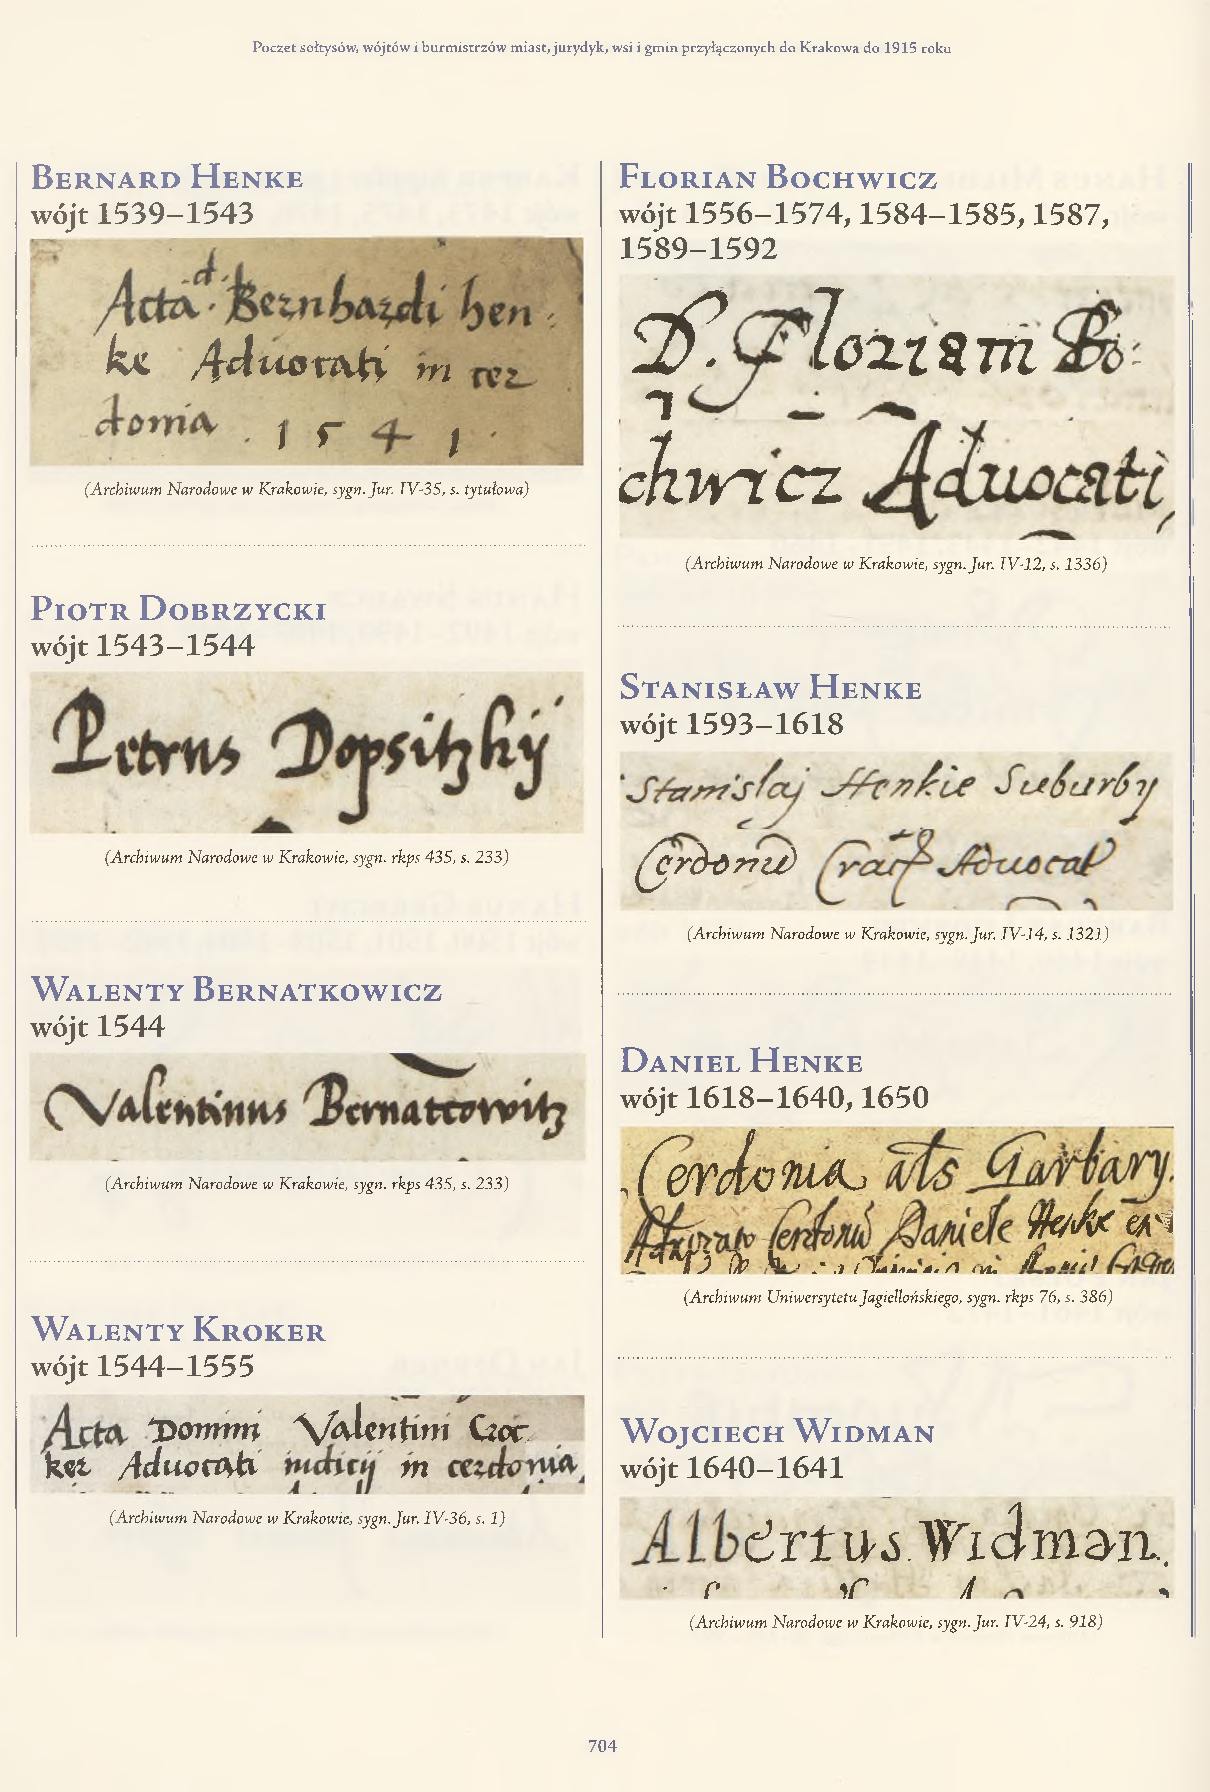 Poczet sołtysów, wójtów i burmistrzów miast, jurydyk, wsi i gmin przyłączonych do Krakowa do 1915 roku
Bernard Henke
wójt 1539–1543
Acta d. Bernhardi hen:
ke Aduocati in cer
donia . 1541.
(Archiwum Narodowe w Krakowie, sygn. Jur. IV-35, s. tytułowa)
Piotr Dobrzycki
wójt 1543–1544
Petrus Dopsitzkij
(Archiwum Narodowe w Krakowie, sygn. rkps 435, s. 233)
Walenty Bernatkowicz
wójt 1544
Valentinus Bernatcowitz
(Archiwum Narodowe w Krakowie, sygn. rkps 435, s. 233)
Walenty Kroker
wójt 1544–1555
Acta Domini Valentini Croc
ker Aduocati iudicij in cerdonia
(Archiwum Narodowe w Krakowie, sygn. Jur. IV-36, s. 1)
Florian Bochwicz
wójt 1556–1574, 1584–1585, 1587,
1589–1592
D. Floriani Bo:
chwicz Aduocati,
(Archiwum Narodowe w Krakowie, sygn. Jur. IV-12, s. 1336)
Stanisław Henke
wójt 1593–1618
Stanislaj Henkie Suburby
Cerdonu Crac Aduocat
(Archiwum Narodowe w Krakowie, sygn. Jur. IV-14, s. 1321)
Daniel Henke
wójt 1618–1640, 1650
Cerdonia als Garbary.
Cerdonu Daniele Henke
(Archiwum Uniwersytetu Jagiellońskiego, sygn. rkps 76, s. 386)
Wojciech Widman
wójt 1640–1641
Albertus Widman.
(Archiwum Narodowe w Krakowie, sygn. Jur. IV-24, s. 918)
704